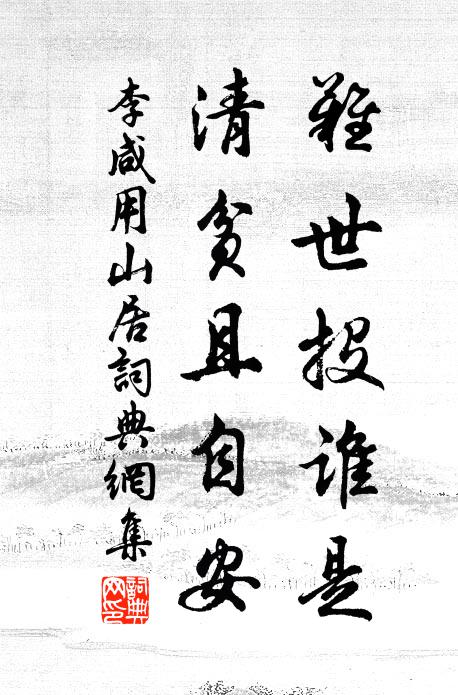 難世投誰是
清貧且自安
李咸用山居詞典網集
詞典
网印